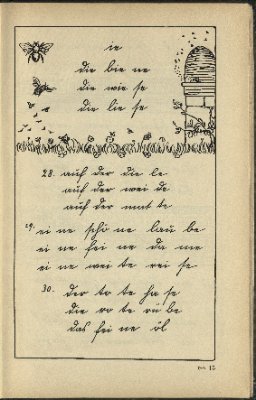 ie
die bie ne
die wie se
die lie se
28. auf der die le
auf der wei de
auf der mat te
29. ei ne schö ne lau be
ei ne fei ne da me
ei ne wei te rei se
30. der ro te ha se
die ro te rü be
das fei ne öl
15